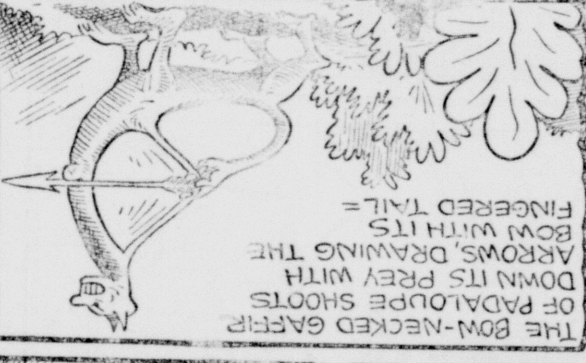 THE BOW-NECKED GAFFIR
OF PADALOUPE SHOOTS
DOWN ITS PREY WITH
ARROWS, DRAWING THE
BOW WITH ITS
FINGERED TAIL=